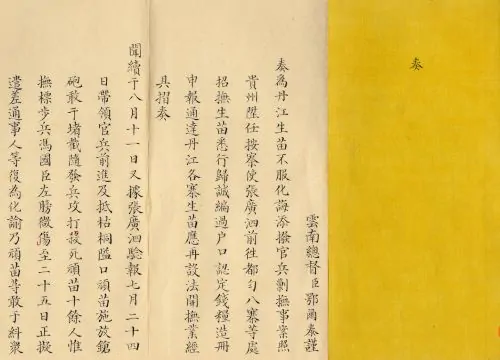 奏
雲南總督臣鄂爾泰謹
奏為丹江生苗不服化誨添撥官兵剿撫事業照
貴州陞任按察使張廣泗前往都勻八寨等處
招撫生苗悉行歸誠編過户口認定錢糧造冊
申報通達丹江各寨生苗應再設法開撫業經
具摺奏
聞續于八月十一日又據張廣泗驗報七月二十四
日帶領官兵前進及抵枯桐隘口頑苗施放鎗
砲敢于堵截隨發兵攻打殺死頑苗十餘人惟
撫標步兵馮國臣左膀微傷至二十五日正擬
遣差通事人等復為化諭乃頑苗等敢于糾衆